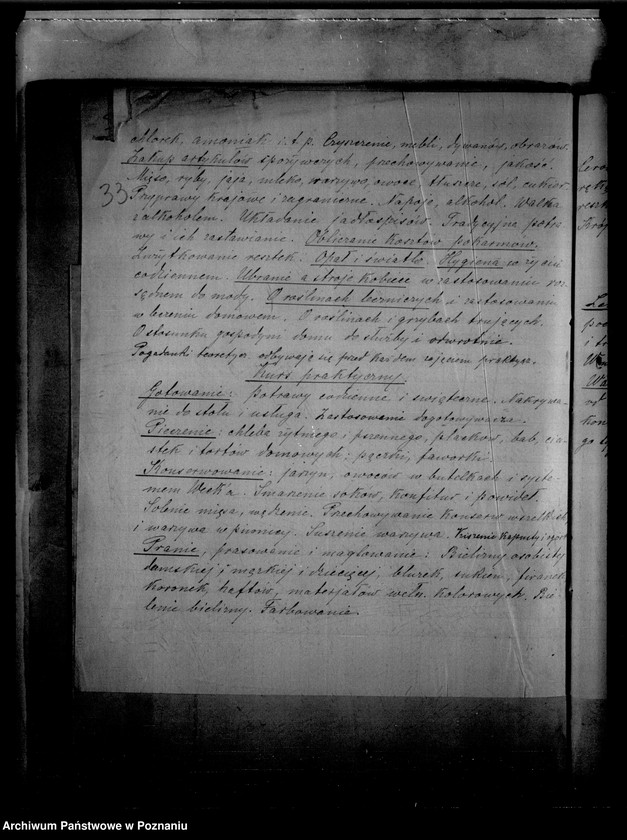 chlorek, amoniak i.t.p. Czyszczenie, mebli, dywanów, obrazów.
Zakup artykułów spożywczych, przechowywanie, jakość.
Mięso, ryby, jaja, mleko, warzywo, owoce, tłuszcze, sól, cukier.
33 Przyprawy krajowe i zagraniczne. Napoje, alkohol. Walka
z alkoholem. Układanie jadłospisów. Tradycyjne potra-
wy i ich zastawianie. Obliczanie kosztów pokarmów.
Zużytkowanie resztek. Opał i światło. Hygiena w życiu
codziennem. Ubranie a stroje kobiece w zastosowaniu roz-
sądnem do mody. O roślinach leczniczych i zastosowaniu
w leczeniu domowem. O roślinach i grzybach trujących.
O stosunku gospodyni domu do służby i odwrotnie.
Pogadanki teoretycz. odbywają się przed każdem zajęciem praktycz.
Kurs praktyczny.
Gotowanie: potrawy codzienne i świąteczne. Nakrywa-
nie do stołu i usługa. Zastosowanie dogotowywacza.
Pieczenie: chleba żytniego i pszennego, placków, bab, cia-
stek i tortów domowych; pączki, faworki.
Konserwowanie: jarzyn, owoców w butelkach i syste-
mem Weck'a. Smażenie soków, konfitur i powideł.
Solenie mięsa, wędzenie. Przechowywanie konserw
i warzywa w piwnicy. Suszenie warzywa. Kiszenie kapusty i
Pranie, prasowanie i maglowanie: Bielizny osobistej
damskiej i męzkiej i dziecięcej, bluzek, sukien, firanek
koronek, haftów, materjałów weln. kolorowych. Bie-
lenie bielizny. Farbowanie.
Archiwum Państwowe w Poznaniu